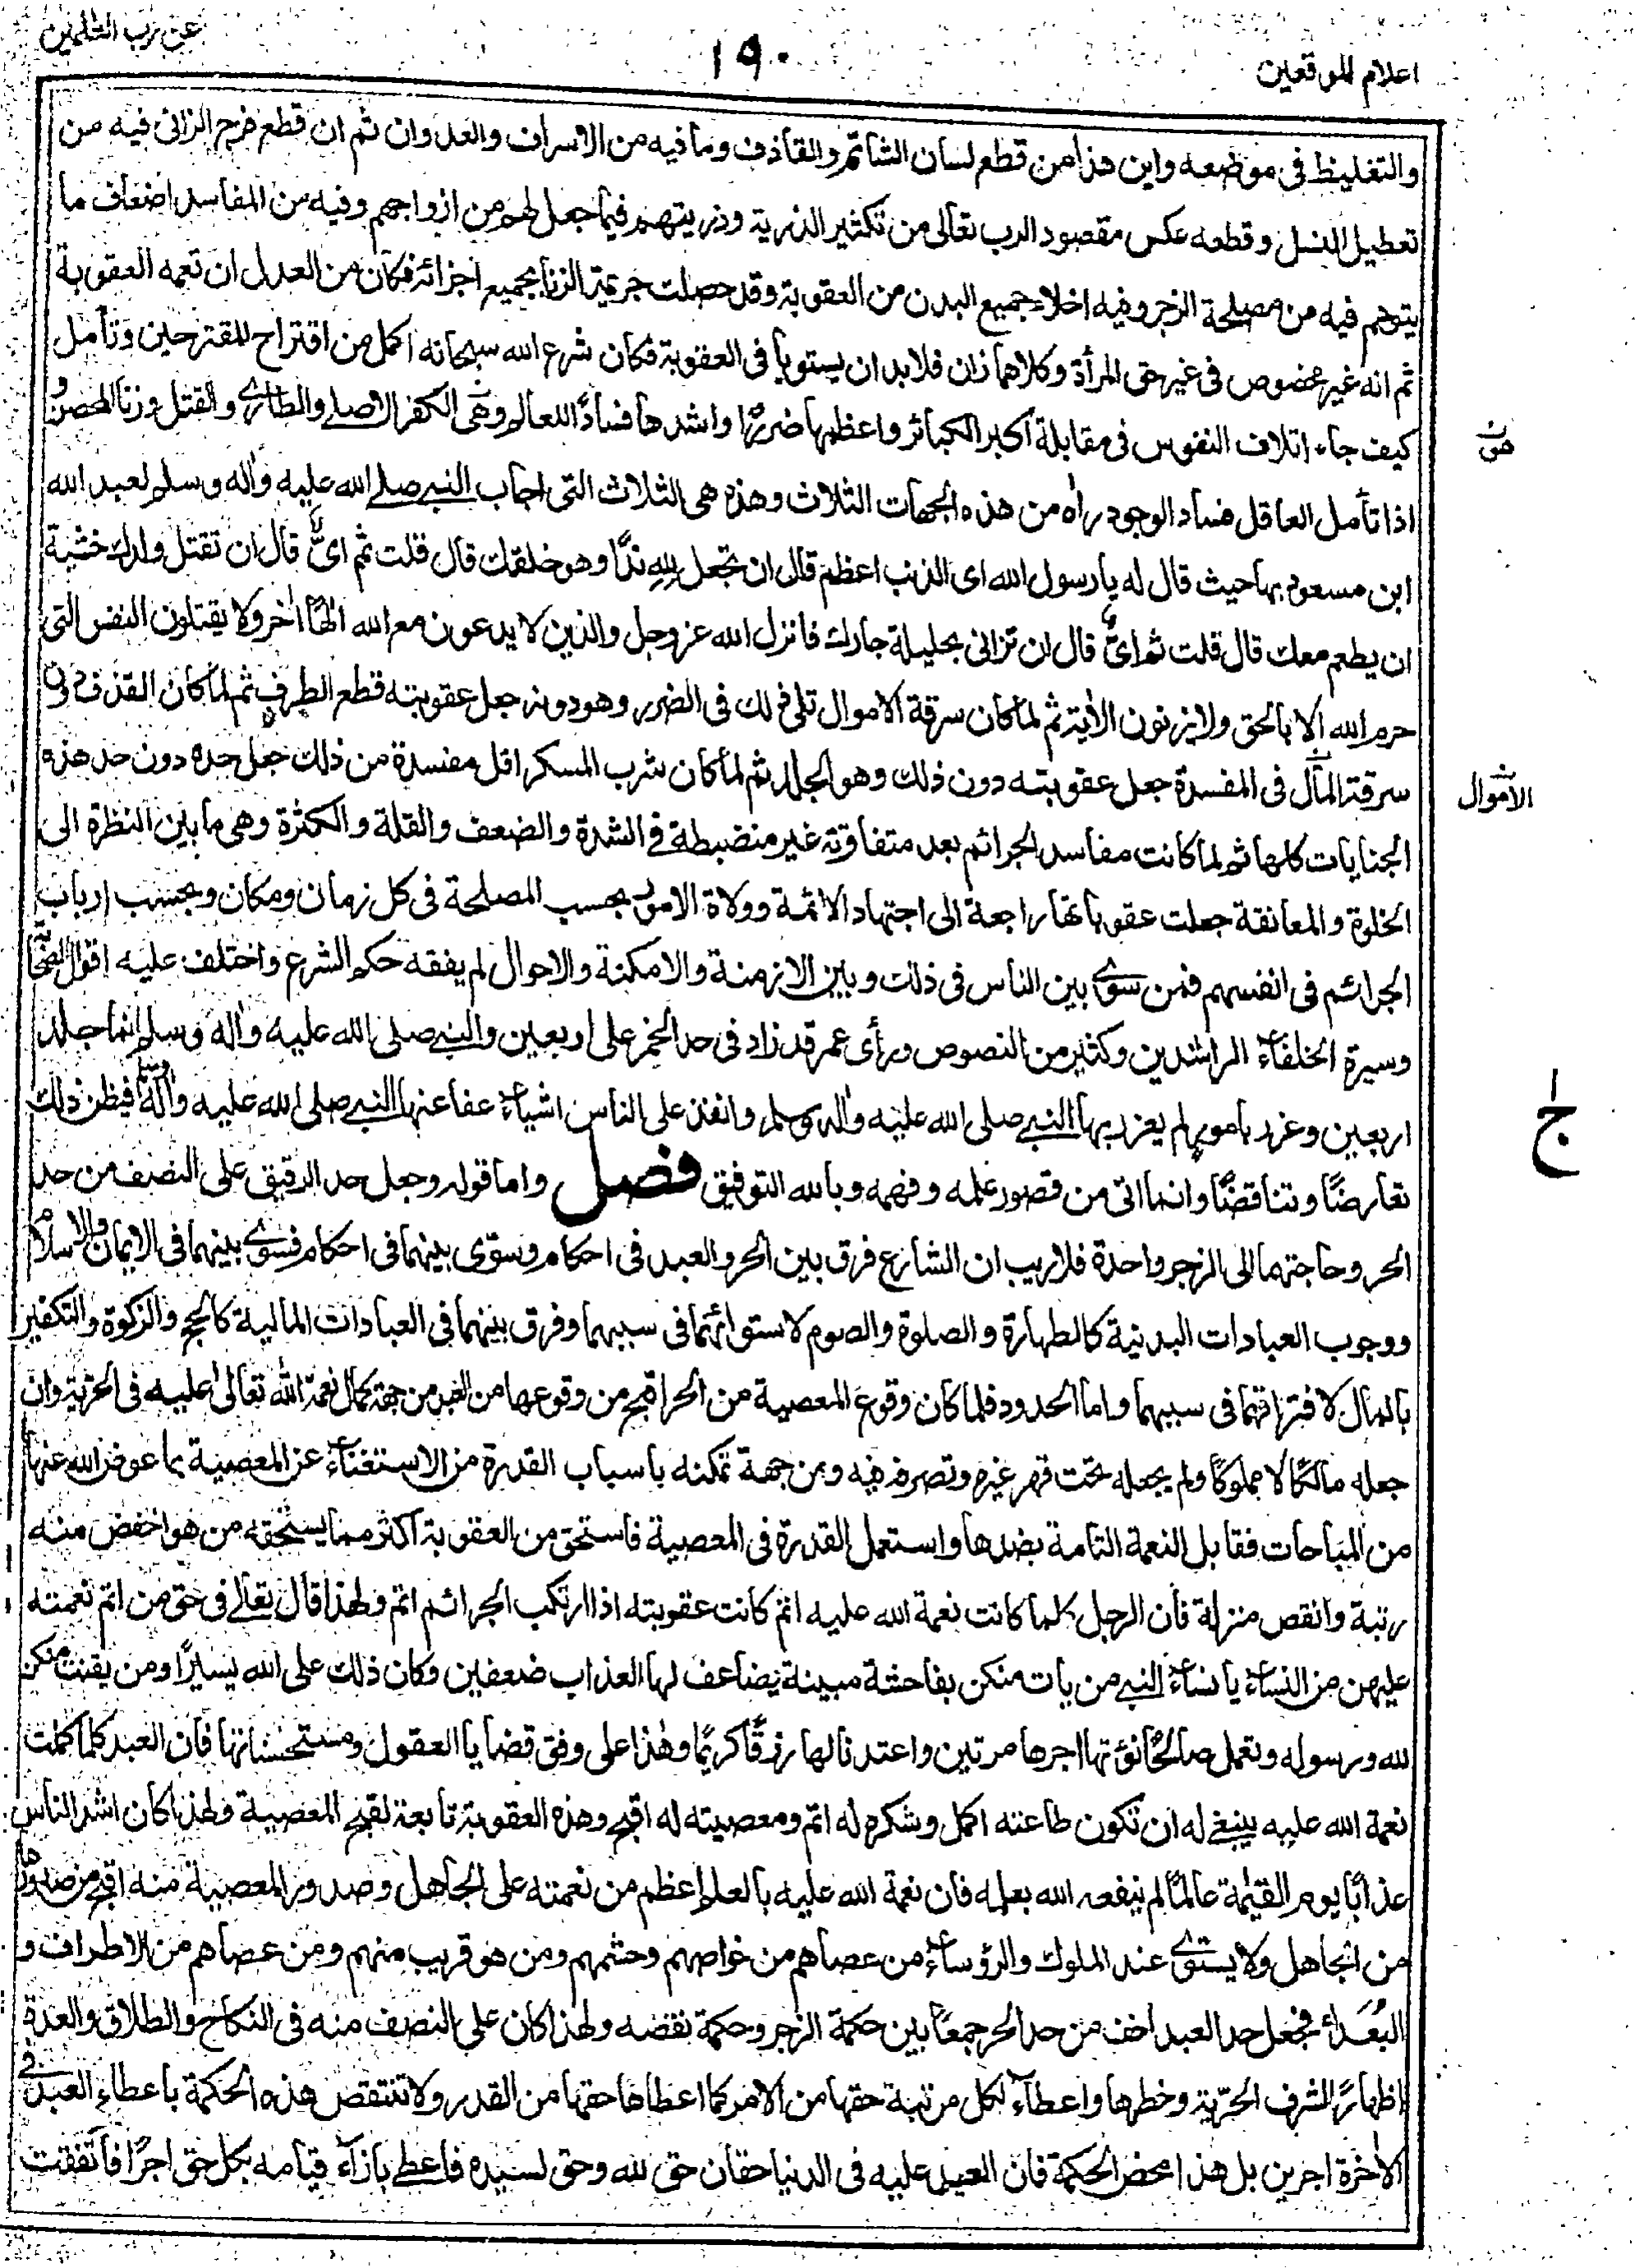 اعلام الموقعين
١٩٠
عن رب العٰلمين
والتغليظ فى موضعه واين هذا من قطع لسان الشاتم والقاذف وما فيه من الاسراف والعدوان ثم ان قطع فرج الزانى فيه من
تعطيل النسل وقطعه عكس مقصود الرب تعالى من تكثير الذرية وذريتهم فيما جعل لهم من ازواجهم وفيه من المفاسد اضعاف ما
يتوهم فيه من مصلحة الزجر وفيه اخلاء جميع البدن من العقوبة وقد حصلت جريمة الزنا بجميع اجزائه فكان من العدل ان تعمه العقوبة
ثم انه غير مخصوص فى غير حق المرأة وكلاهما زان فلا بد ان يستويا فى العقوبة فكان شرع الله سبحانه اكمل من اقتراح المقترحين وتأمل
كيف جاء اتلاف النفوس فى مقابلة اكبر الكبائر واعظمها ضررًا واشدها فسادًا للعالم وهى الكفر الاصلے والطارے والقتل وزنا المحصن و
هن
اذا تأمل العاقل فساد الوجود راٰه من هذه الجهات الثلاث وهذه هى الثلاث التى اجاب النبے صلے الله عليه واٰله وسلم لعبد الله
ابن مسعود بها حيث قال له يا رسول الله اى الذنب اعظم قال ان تجعل لله ندًّا وهو خلقك قال قلت ثم اىٌّ قال ان تقتل ولدك خشية
ان يطعم معك قال قلت ثم اىٌّ قال ان تزانى بحليلة جارك فانزل الله عز وجل والذين لا يدعون مع الله الٰهًا اٰخر ولا يقتلون النفس التى
حرم الله الا بالحق ولا يزنون الاٰية ثم لما كان سرقة الاموال تلى ذلك فى الضرر وهو دونه جعل عقوبته قطع الطرف ثم لما كان القذف دون
سرقة المال فى المفسدة جعل عقوبته دون ذلك وهو الجلد ثم لما كان شرب المسكر اقل مفسدة من ذلك جعل حده دون حد هذه
الاموال
الجنايات كلها ثم لما كانت مفاسد الجرائم بعد متفاوتة غير منضبطة فے الشدة والضعف والقلة والكثرة وهى ما بين النظرة الى
الخلوة والمعانقة جعلت عقوباتها راجعة الى اجتهاد الائمة وولاة الامور بحسب المصلحة فى كل زمان ومكان وبحسب ارباب
الجرائم فى انفسهم فمن سوّے بين الناس فى ذلك وبين الازمنة والامكنة والاحوال لم يفقه حكم الشرع واختلف عليه اقوال الصحا
وسيرة الخلفاء الراشدين وكثير من النصوص ورأى عمر قد زاد فى حد الخمر على اربعين والنبے صلى الله عليه واٰله وسلم انما جلد
اربعين وعزر بامور لم يعزر بها النبے صلى الله عليه واٰله وسلم وانفذ على الناس اشياء عفا عنها النبے صلى الله عليه واٰله وسلم فيظن ذلك
ج
تعارضًا وتناقضًا وانما اتى من قصور علمه وفهمه وبالله التوفيق فصل واما قوله وجعل حد الرقيق على النصف من حد
الحر وحاجتهما الى الزجر واحدة فلا ريب ان الشارع فرق بين الحر والعبد فى احكام وسوّى بينهما فى احكام فسوّے بينهما فى الايمان والاسلام
ووجوب العبادات البدنية كالطهارة والصلوة والصوم لاستوائهما فى سببهما وفرق بينهما فى العبادات المالية كالحج والزكوة والتكفير
بالمال لافتراقهما فى سببهما واما الحدود فلما كان وقوع المعصية من الحر اقبح من وقوعها من العبد من جهة كمال نعمة الله تعالى عليه فى الحرية وان
جعله مالكًا لا مملوكًا ولم يجعله تحت قهر غيره وتصرفه فيه ومن جهة تمكنه باسباب القدرة من الاستغناء عن المعصية بما عوض الله عنها
من المباحات فقابل النعمة التامة بضدها واستعمل القدرة فى المعصية فاستحق من العقوبة اكثر مما يستحقه من هو اخفض منه
رتبة وانقص منزلة فان الرجل كلما كانت نعمة الله عليه اتم كانت عقوبته اذا ارتكب الجرائم اتم ولهذا قال تعالے فى حق من اتم نعمته
عليهن من النساء يا نساء النبے من يات منكن بفاحشة مبينة يضاعف لها العذاب ضعفين وكان ذلك على الله يسيرًا ومن يقنت منكن
لله ورسوله وتعمل صالحًا نؤتها اجرها مرتين واعتدنا لها رزقًا كريمًا وهٰذا على وفق قضايا العقول ومستحسناتها فان العبد كلما كملت
نعمة الله عليه ينبغے له ان تكون طاعته اكمل وشكره له اتم ومعصيته له اقبح وهذه العقوبة تابعة لقبح المعصية ولهذا كان اشد الناس
عذابًا يوم القيٰمة عالمًا لم ينفعه الله بعلمه فان نعمة الله عليه بالعلم اعظم من نعمته على الجاهل وصدور المعصية منه اقبح من صدورها
من الجاهل ولا يستوے عند الملوك والرؤساء من عصاهم من خواصهم وحشمهم ومن هو قريب منهم ومن عصاهم من الاطراف و
البُعَداء فجعل حد العبد اخف من حد الحر جمعًا بين حكمة الزجر وحكمة نقصه ولهذا كان على النصف منه فى النكاح والطلاق والعدة
اظهارًا لشرف الحرّية وخطرها واعطاء لكل مرتبة حقها من الامر كما اعطاها حقها من القدر ولا تنتقض هذه الحكمة باعطاء العبد فے
الاٰخرة اجرين بل هذا محض الحكمة فان العبد عليه فى الدنيا حقان حق لله وحق لسيده فاعطے بازاء قيامه بكل حق اجرًا فاتفقت